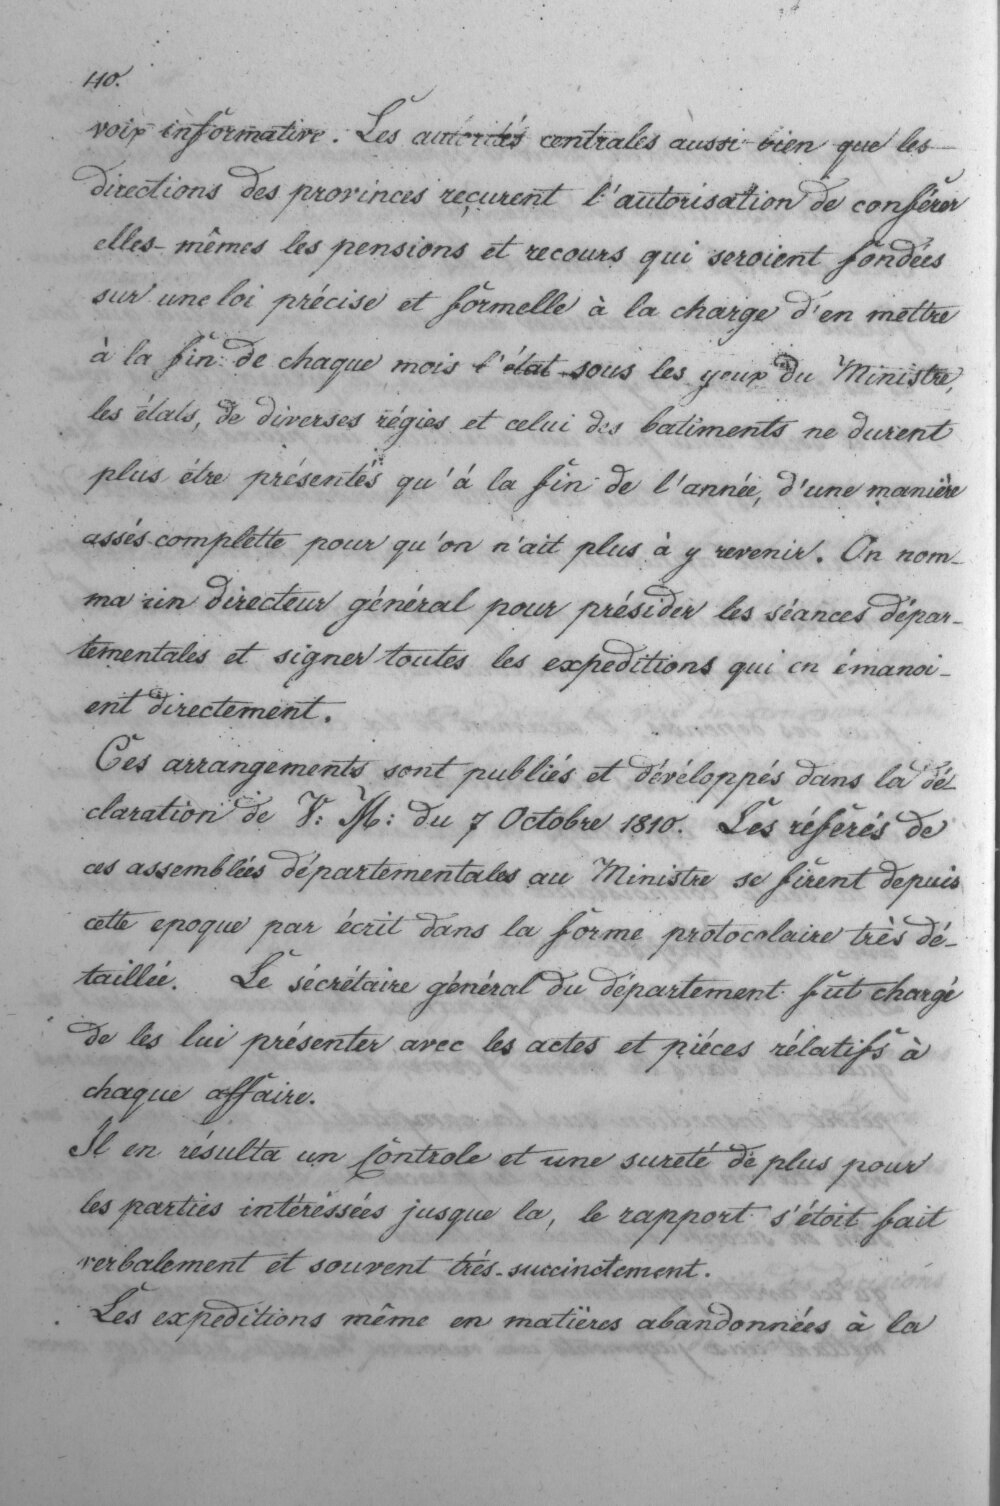 40.
voix informative. Les autorités centrales aussi-bien que les
directions des provinces reçurent l'autorisation de conférer
elles-mêmes les pensions et recours qui seroient fondées
sur une loi précise et formelle à la charge d'en mettre
à la fin de chaque mois l'état sous les yeux du Ministre,
les états, de diverses régies et celui des batiments ne durent
plus étre présentés qu'à la fin de l'année, d'une manière
assés complette pour qu'on n'ait plus à y revenir. On nom-
ma un directeur général pour présider les séances dépar-
tementales et signer toutes les expeditions qui en émanoi-
ent directement.
Ces arrangements sont publiés et dévéloppés dans la dé-
claration de V: M: du 7 Octobre 1810. Les référés de
ces assemblées départementales au Ministre se firent depuis
cette epoque par écrit dans la forme protocolaire très dé-
taillée. Le sécrétaire général du département fut chargé
de les lui présenter avec les actes et piéces rélatifs à
chaque affaire.
Il en résulta un Controle et une sureté de plus pour
les parties intéréssées jusque la, le rapport s'étoit fait
verbalement et souvent trés-succinctement.
Les expeditions même en matières abandonnées à la